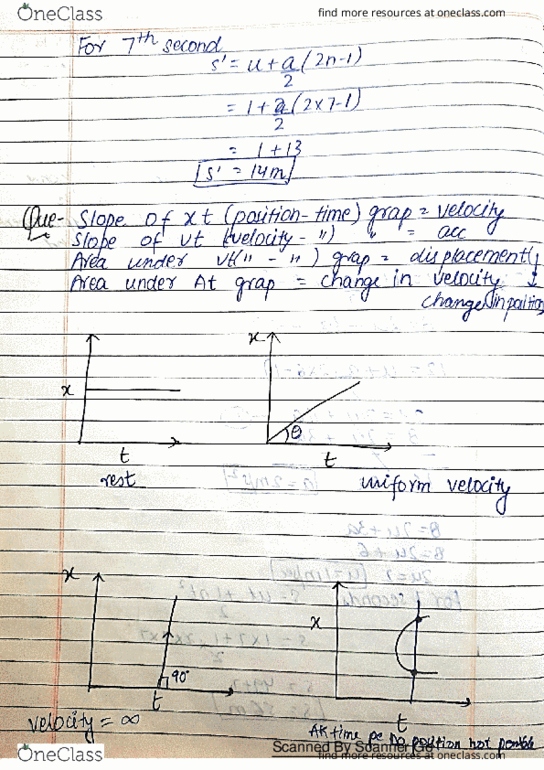 OneClass
find more resources at oneclass.com
For 7th second
s' = u + a/2 (2n-1)
= 1 + 2/2 (2x7-1)
= 1 + 13
s' = 14m
Que- Slope of xt (position-time) grap = velocity
Slope of vt (velocity - ") " = acc
Area under vt (" - ") grap = displacement
Area under At grap = change in velocity
change in position
x
t
rest
x
θ
t
uniform velocity
x
90°
t
velocity = ∞
x
t
Ak time pe do position not possible
Scanned By Scanner Go
OneClass
find more resources at oneclass.com